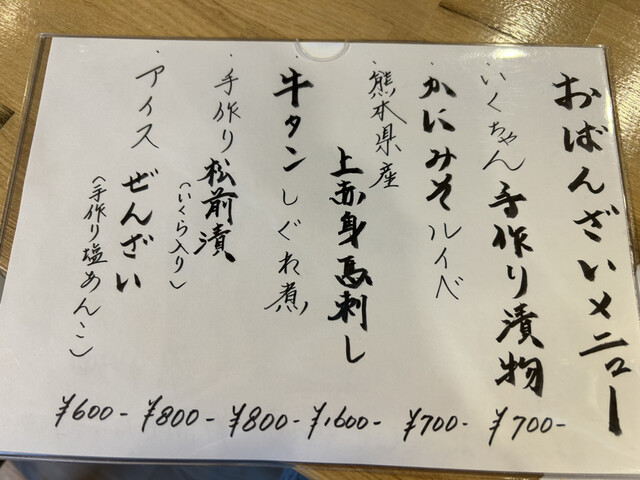 おばんざいメニュー
・いくちゃん手作り漬物 ¥700-
・かにみそルイベ ¥700-
・熊本県産
上赤身馬刺し ¥1,600-
・牛タンしぐれ煮 ¥800-
・手作り松前漬 ¥800-
(いくら入り)
・アイスぜんざい ¥600-
(手作り塩あんこ)